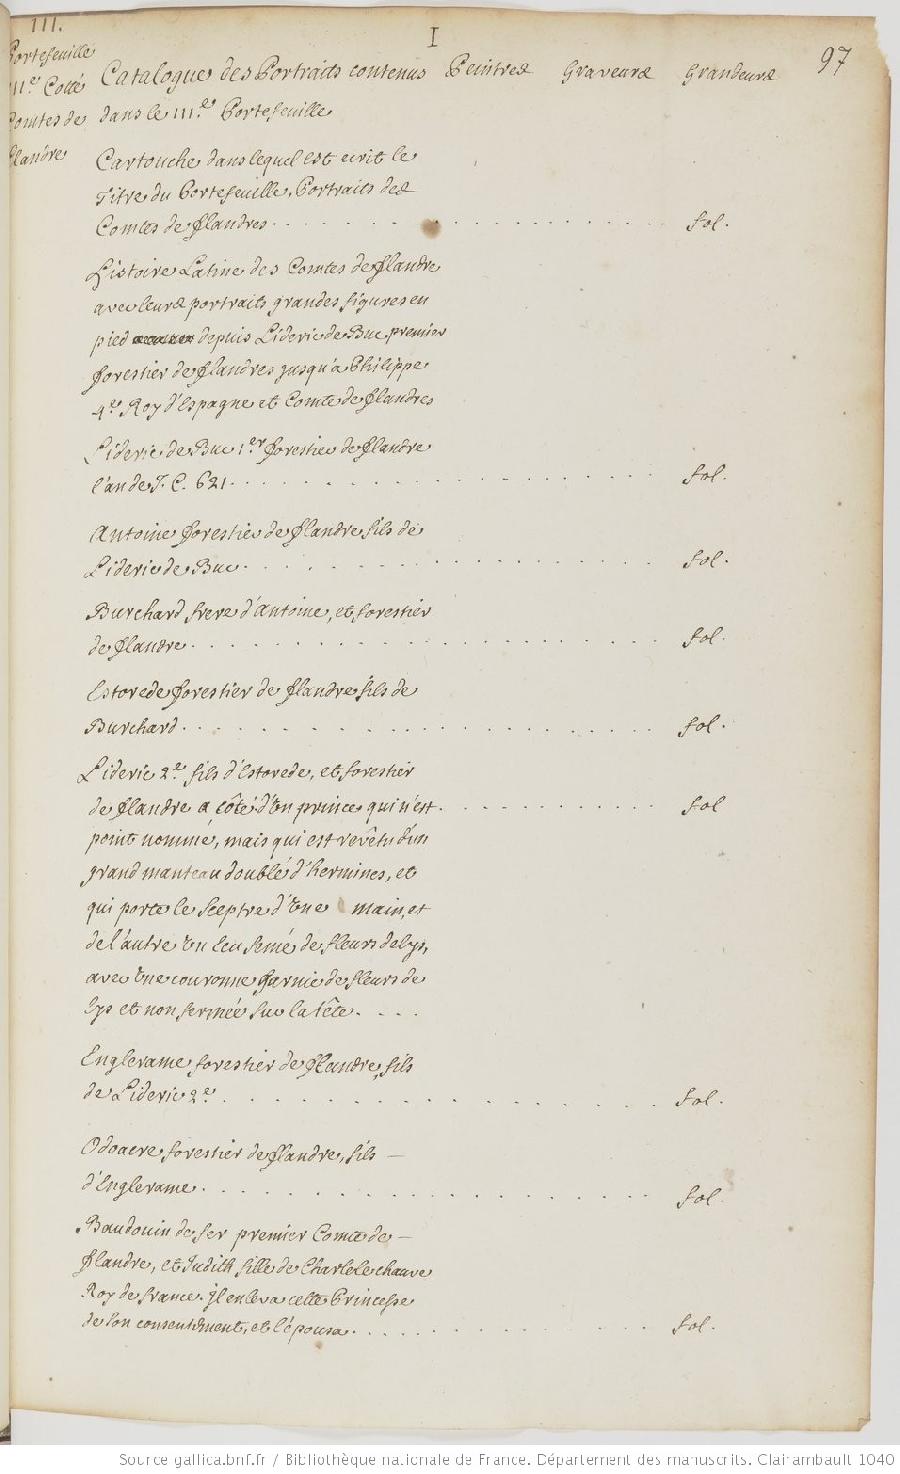 III.
I
97
Portefeuille
IIIe. Cotté
Comtes de
flandre
Catalogue des Portraits contenus Peintres Graveurs Grandeurs
dans le IIIe. Portefeuille
Cartouche dans lequel est ecrit le
Titre du Portefeuille, Portraits des
Comtes de flandres . . . . . . . . . . . . . . . . fol.
histoire Latine des Comtes de flandre
avec leurs portraits grandes figures en
pied depuis Lideric de Buc premier
forestier de flandres jusqu'a Philippe
4e. Roy d'Espagne et Comte de flandres
Lideric de Buc 1er. forestier de flandre
l'an de J. C. 621 . . . . . . . . . . . . . . . . fol.
Antoine forestier de flandre fils de
Lideric de Buc . . . . . . . . . . . . . . . . fol.
Burchard frere d'antoine, et forestier
de flandre . . . . . . . . . . . . . . . . fol.
Estorede forestier de flandre fils de
Burchard . . . . . . . . . . . . . . . . fol.
Lideric 2e. fils d'Estorede, et forestier
de flandre a côté d'un prince qui n'est . . . . . . . . . . fol
point nommé, mais qui est revêtu d'un
grand manteau doublé d'hermines, et
qui porte le sceptre d'une main, et
de l'autre un Ecu semé de fleurs de lys,
avec une couronne garnie de fleurs de
lys et non fermée sur la tête . . . .
Englerame forestier de flandre, fils
de Lideric 2e. . . . . . . . . . . . . . . . . fol.
Odoacre forestier de flandre, fils —
d'Englerame . . . . . . . . . . . . . . . . fol.
Baudouin de fer premier Comte de —
flandre, et Judith fille de Charle le chauve
Roy de france. jl enleva cette Princesse
de son consentiment, et l'épousa . . . . . . . . . . . . fol.
Source gallica.bnf.fr / Bibliothèque nationale de France. Département des manuscrits. Clairambault 1040